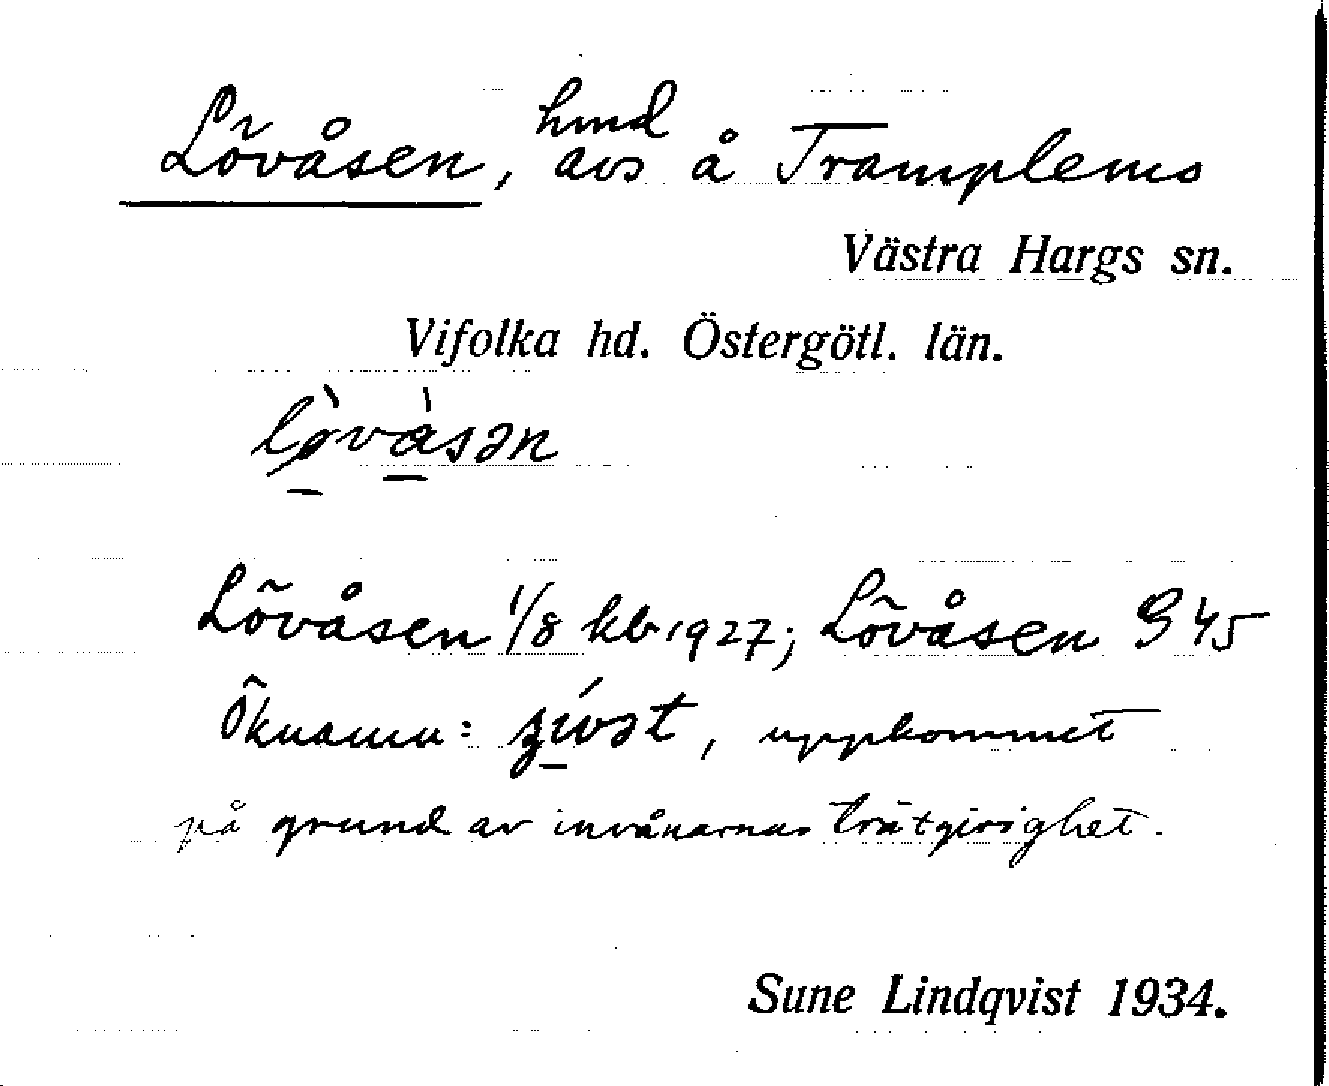 Lövåsen, hmd avs å Tramplems
Västra Hargs sn.
Vifolka hd. Östergötl. län.
Lövåsen 1/8 kb 1927; Lövåsen G 45
Öknamn: , uppkommet
på grund av invånarnas trätgirighet.
Sune Lindqvist 1934.